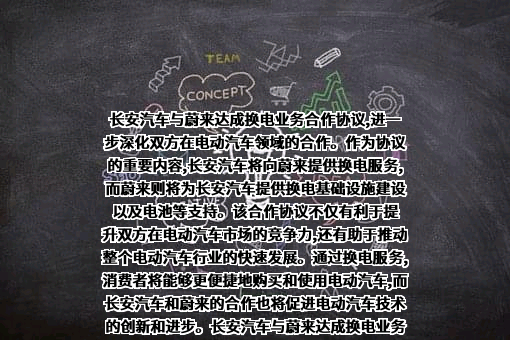 TEAM
CONCEPT
长安汽车与蔚来达成换电业务合作协议,进一
步深化双方在电动汽车领域的合作。作为协议
的重要内容,长安汽车将向蔚来提供换电服务,
而蔚来则将为长安汽车提供换电基础设施建设
以及电池等支持。该合作协议不仅有利于提
升双方在电动汽车市场的竞争力,还有助于推动
整个电动汽车行业的快速发展。通过换电服务,
消费者将能够更便捷地购买和使用电动汽车,而
长安汽车和蔚来的合作也将促进电动汽车技术
的创新和进步。长安汽车与蔚来达成换电业务